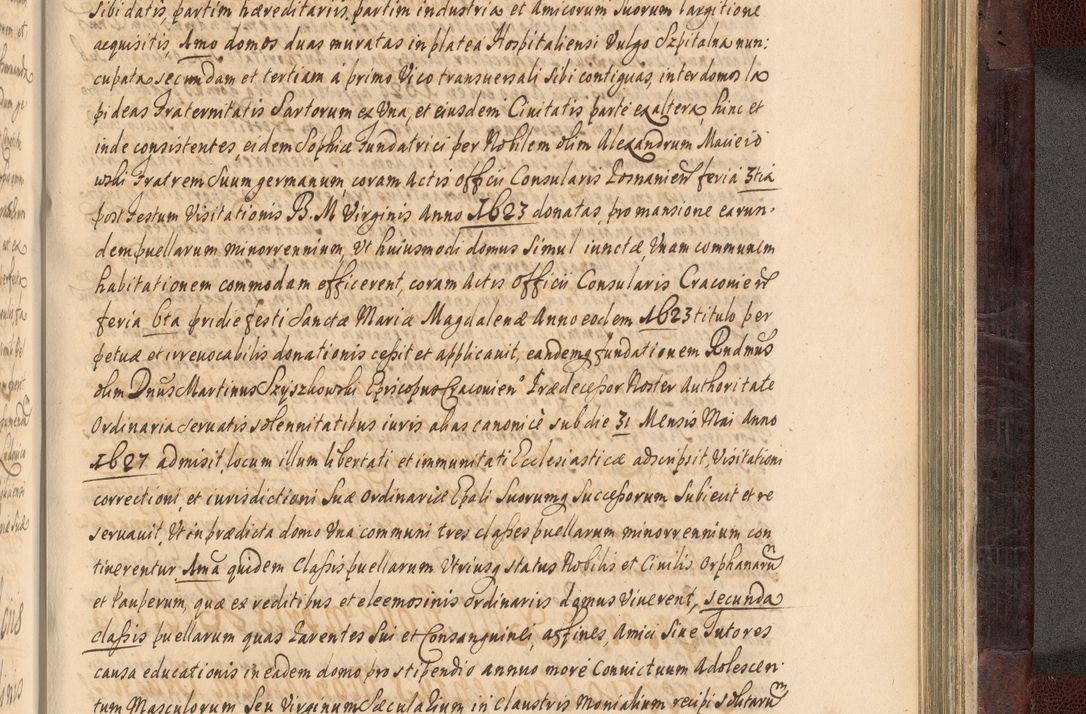 sibi datis, partim hæreditariis, partim industria et Amicorum suorum largitione
acquisitis, Amo domos duas muratas in platea Hospitaliensi Vulgo Szpitalna nun:
cupata secundam et tertiam à primo Vico transversali sibi contiguas, inter domos la
pideas Fraternitatis Sartorum ex Una, et eiusdem Civitatis parte ex altera hinc et
inde consistentes, eidem Sophiæ Fundatrici per Nobilem olim Alexandrum Macieio
wski Fratrem Suum germanum coram Actis Officii Consularis Posnanien feria 3tia
post Festum Visitationis B. M Virginis Anno 1623 donatas, pro mansione earun-
dem puellarum minorrennium, Ut huiusmodi domus simul iunctæ, Unam communem
habitationem commodam efficerent, coram Actis Officii Consularis Cracovien
feria 6ta pridie festi Sanctæ Mariæ Magdalenæ Anno eodem 1623 titulo per
petuæ et irrevocabilis donationis cessit et applicavit, eandemq fundationem Rndmus
olim Dnus Martinus Szyszkowski Episcopus Cracovien Prædecessor Noster Authoritate
Ordinaria servatis solennitatibus iuris ab as canonicè sub die 31 Mensis Mai Anno
1627 admisit, locum illum libertati et immunitati Ecclesiasticæ adscripsit, Visitationi
correctioni, et iurisdictioni Suæ Ordinariæ Epali Suorumq Successorum Subiecit et re
servavit, Ut in prædicta domo Una communi tres classes puellarum minorrennium con
tinerentur, Ama quidem Classis puellarum Utriusq status Nobilis et Civilis Orphanarum
et Pauperum, quæ ex reditibus et eleemosinis ordinariis domus Viverent, secunda
classis puellarum quas Parentes Sui et Consanguinei, affines, Amici Sive Tutores
causa educationis in eadem domo pro stipendio annuo more Convictuum Adolescen-
tum Masculorum Seu Virginum Sæcularium in claustris Monialium recipi solitarum